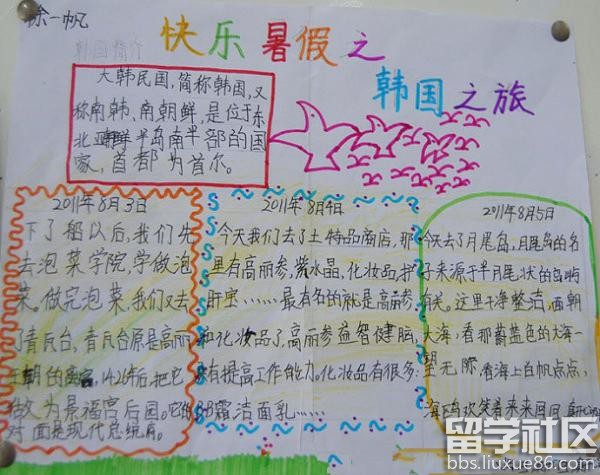 徐一帆
快乐暑假之
韩国之旅
韩国简介
大韩民国,简称韩国,又
称南韩、南朝鲜,是位于东
北亚朝鲜半岛南半部的国
家,首都为首尔。
2011年8月3日
下了船以后,我们先
去泡菜学院,学做泡
菜。做完泡菜,我们又去
了青瓦台,青瓦台原是高丽
王朝的离宫,1426年后,把它
做为景福宫后园。它的
对面是现代总统府。
2011年8月4日
今天我们去了土特品商店,那
里有高丽参,紫水晶,化妆品,护
肝宝……最有名的就是高丽参
和化妆品了,高丽参益智健脑,
有提高工作的能力。化妆品有很多:
霜洁面乳……
2011年8月5日
今天去了月尾岛,月尾岛的名
子来源于半月尾状的岛屿
有关。这里干净整洁,面朝
大海,看那蔚蓝色的大海一
望无际,看海上白帆点点,
海鸥欢笑着来来回回
留学社区
bbs.liuxue86.com